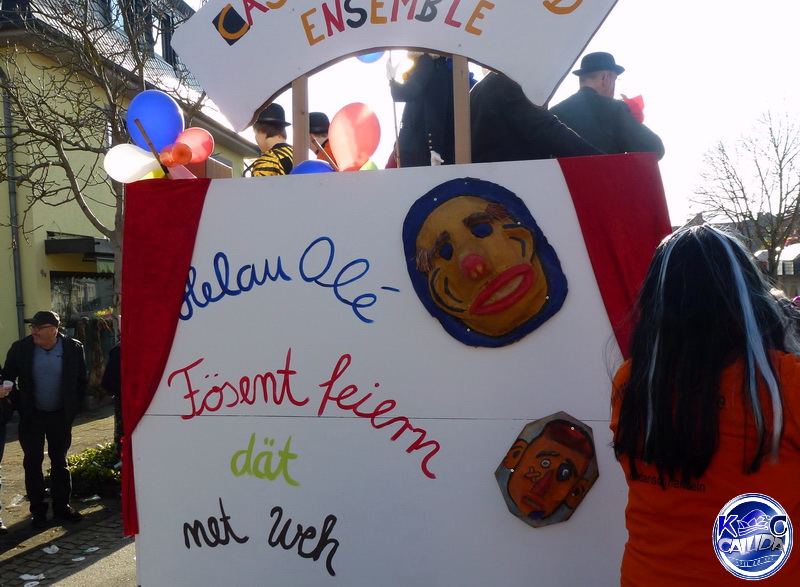 ENSEMBLE
Helau Olé
Fösent feiern
dät
net weh
K C
CALIDA